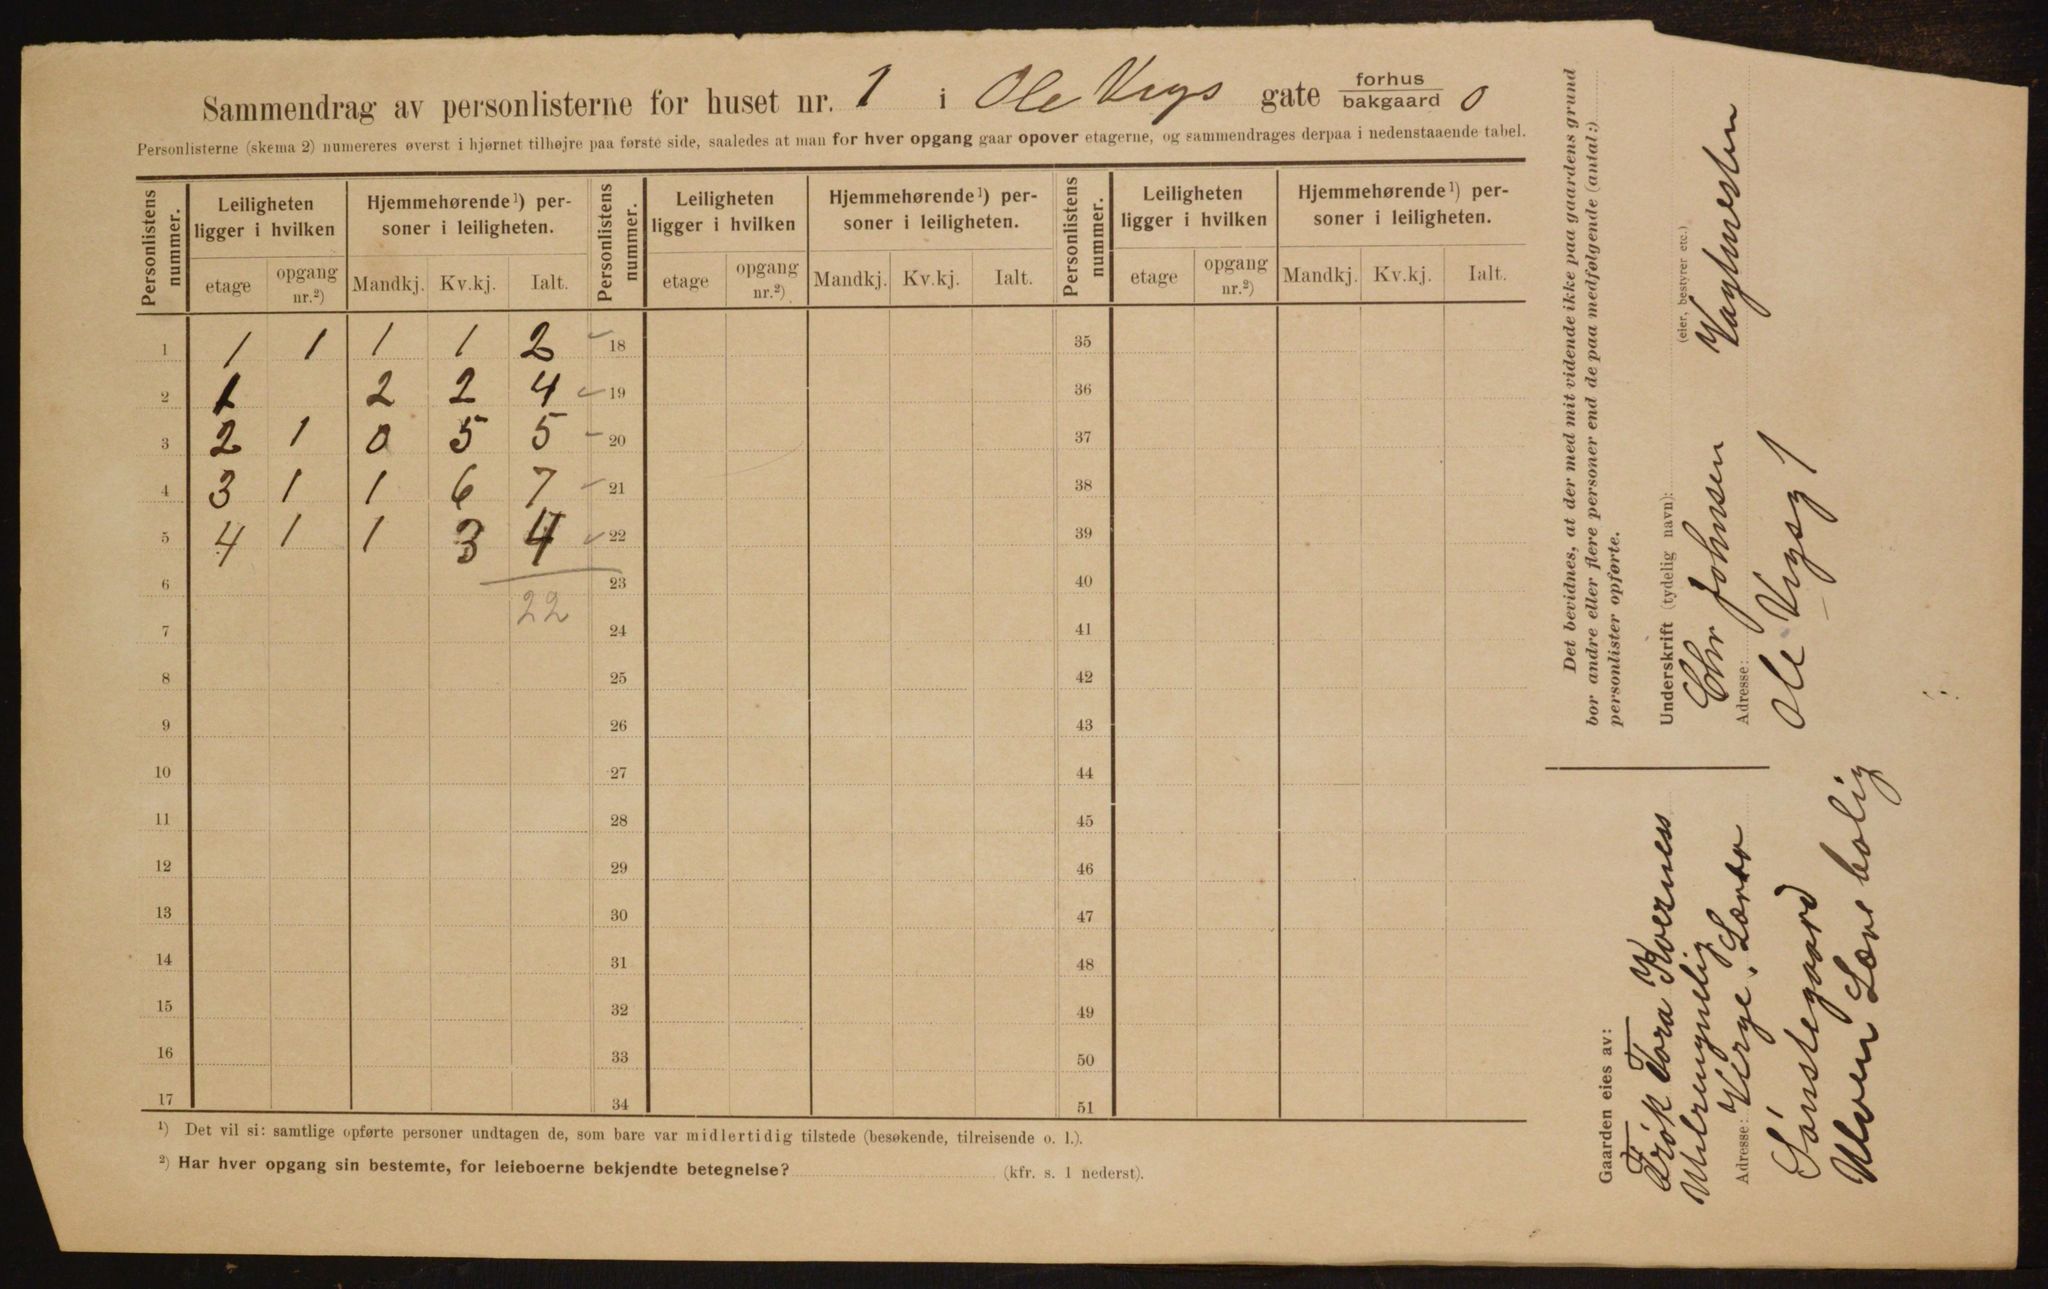 Sammendrag av personlisterne for huset nr. 1 i Ole Vigs gate forhus bakgaard 0
Personlisterne (skema 2) numereres øverst i hjørnet tilhøjre paa første side, saaledes at man for hver opgang gaar opover etagerne, og sammendrages derpaa i nedenstaaende tabel.
Personlistens nummer. Leiligheten ligger i hvilken Hjemmehørende¹) personer i leiligheten. Personlistens nummer. Leiligheten ligger i hvilken Hjemmehørende¹) personer i leiligheten. Personlistens nummer. Leiligheten ligger i hvilken Hjemmehørende¹) personer i leiligheten.
etage opgang nr.²) Mandkj. Kv.kj. Ialt. etage opgang nr.²) Mandkj. Kv.kj. Ialt. etage opgang nr.²) Mandkj. Kv.kj. Ialt.
1 1 1 1 1 2 18 35
2 1 2 2 4 19 36
3 2 1 0 5 5 20 37
4 3 1 1 6 7 21 38
5 4 1 1 3 4 22 39
6 23 40
22
7 24 41
8 25 42
9 26 43
10 27 44
11 28 45
12 29 46
13 30 47
14 31 48
15 32 49
16 33 50
17 34 51
¹) Det vil si: samtlige opførte personer undtagen de, som bare var midlertidig tilstede (besøkende, tilreisende o. l.).
²) Har hver opgang sin bestemte, for leieboerne bekjendte betegnelse? (kfr. s. 1 nederst).
Det bevidnes, at der med mit vidende ikke paa gaardens grund
bor andre eller flere personer end de paa medfølgende (antal:)
personlister opførte.
Underskrift (tydelig navn):
(eier, bestyrer etc.)
Chr Johnsen Vagtmesten
Adresse:
Ole Vigsg 1
Gaarden eies av:
Frøk Tora Kverness
Umyndig
Adresse: Verge. Lærer
Sønstegaard
Ulven Lærebolig